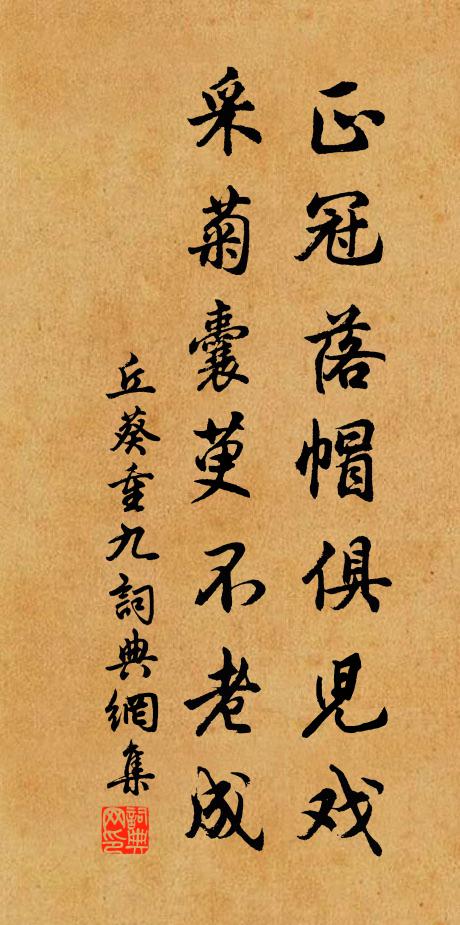 正冠落帽俱児戏
采菊囊萸不老成
丘葵重九詞典網集
詞典网印